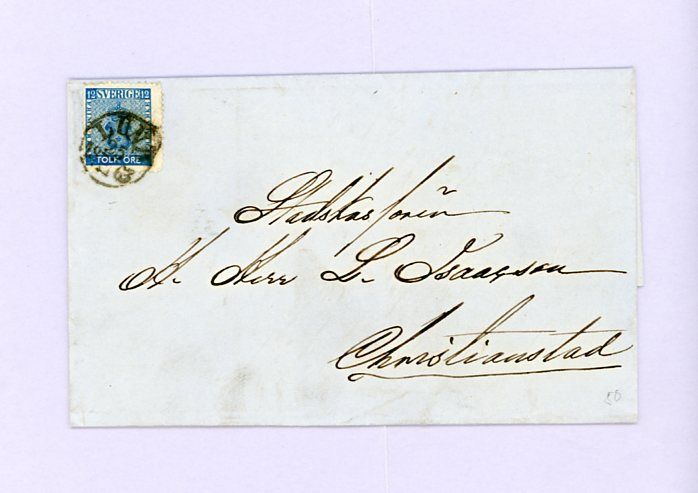 12 SVERIGE 12
TOLF ÖRE
Stadskassören
H. Herr L. Isaacson
Christianstad
50